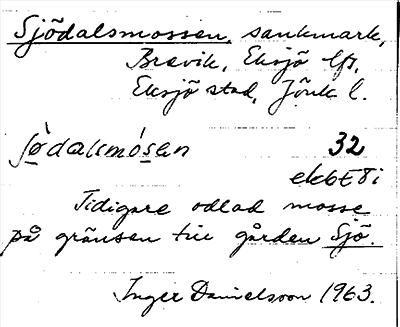 Sjödalsmossen, sankmark,
Bravik, Eksjö lfs,
Eksjö stad, Jönk l.
sjö̀dalsmósen 32
ek6E8i
Tidigare odlad mosse
på gränsen till gården Sjö.
Inger Danielsson 1963.